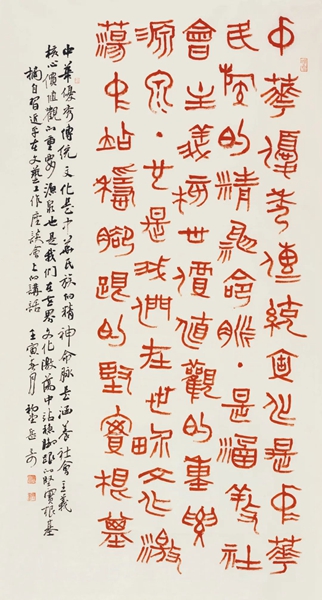 中華優秀傳統文化是中華
民族的精神命脈·是涵養社
會主義核心價值觀的重要
源泉·也是我們在世界文化激
蕩中站穩腳跟的堅實根基
中華優秀傳統文化是中華民族的精神命脈是涵養社會主義
核心價值觀的重要源泉也是我們在世界文化激蕩中站穩腳跟的堅實根基
摘自習近平在文藝工作座談會上的講話 壬寅 月